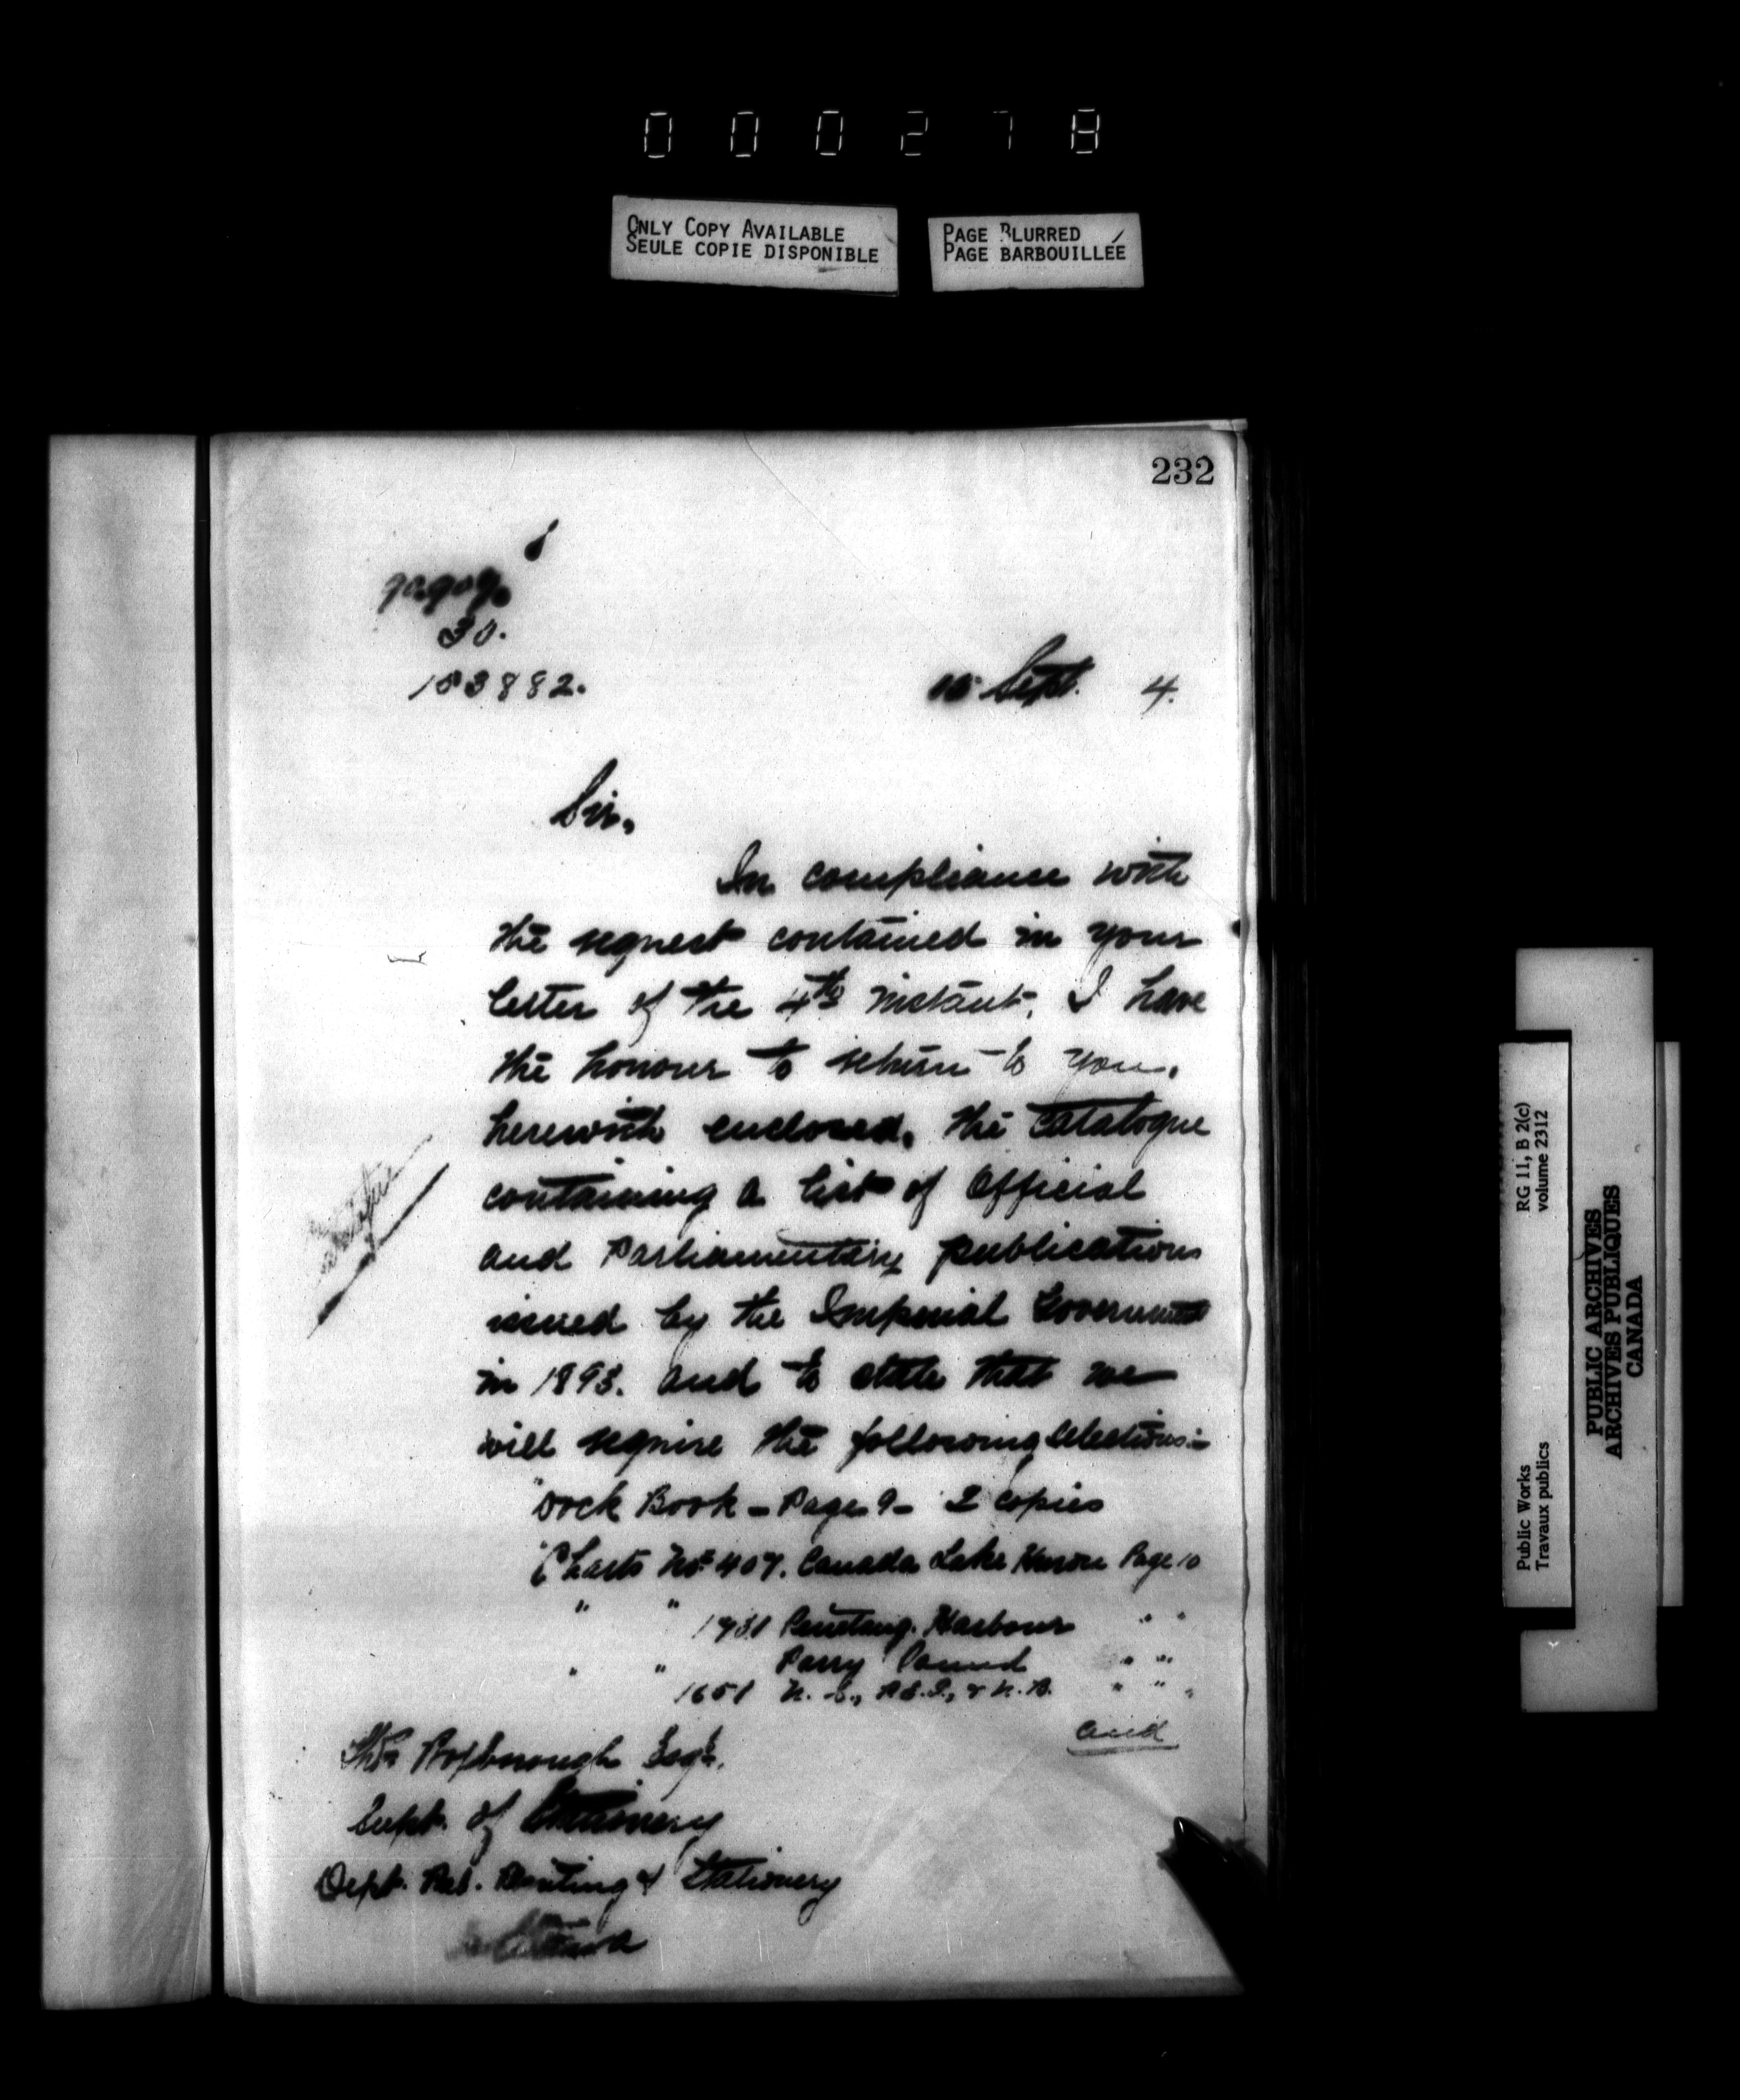 000278
ONLY COPY AVAILABLE
SEULE COPIE DISPONIBLE
PAGE BLURRED
PAGE BARBOUILLÉE
232
30.
153882.
Sept. 4.
Sir,
In compliance with
the request contained in your
letter of the 4th instant, I have
the honour to return to you,
herewith enclosed, the Catalogue
containing a list of Official
and Parliamentary publications
issued by the Imperial Government
in 1893. and to state that we
will require the following selections:-
Dock Book - Page 9 - 2 copies
Charts No. 407. Canada Lake Huron Page 10
" " 1931 Penetang. Harbour " "
" " Parry Sound " "
1651 N. S., P.E.I., & N.B. " "
and
Thos Roxborough Esqr.
Supt. of Stationery
Dept. Pub. Printing & Stationery
Ottawa
Public Works
Travaux publics
RG 11, B 2(c)
volume 2312
PUBLIC ARCHIVES
ARCHIVES PUBLIQUES
CANADA